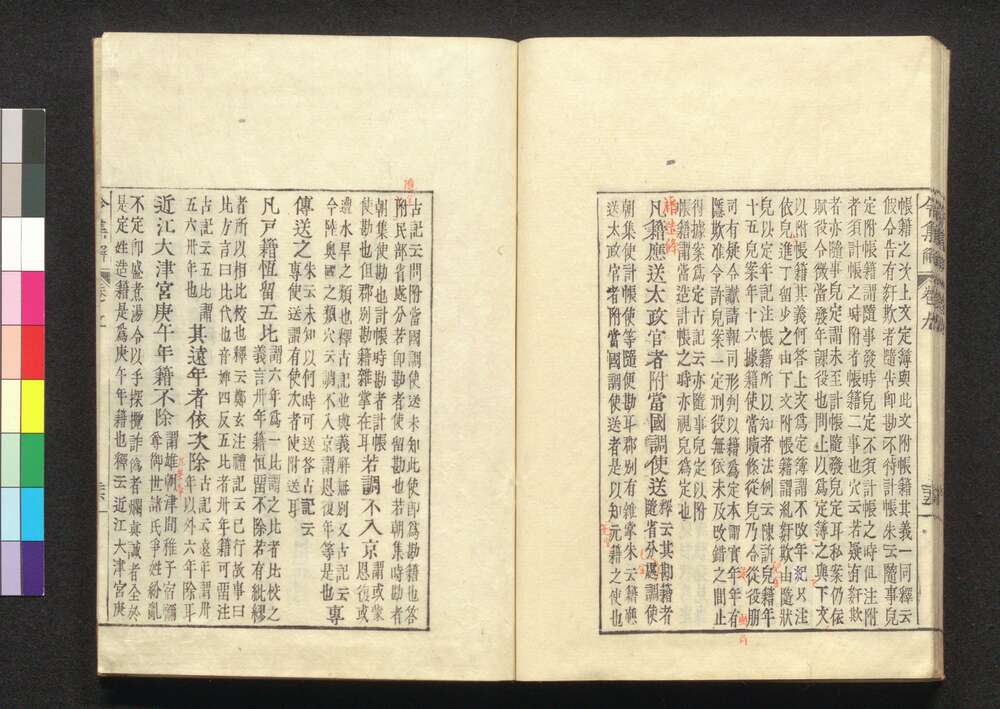 帳籍之次上文定簿與此文附帳籍其義一同釋云
假令告有奸欺者隨當卽勘不待計帳朱云隨事皃
定附帳籍謂隨事發時皃定不須計帳之時但注附
者須計帳之時附者帳籍二事也穴云若疑有奸欺
者亦隨事皃定謂未至計帳隨發皃定耳私案仍依
賦役令徵當發年課役也問止以爲定簿之與下文
以附帳籍其義何答上文爲定簿謂不改年紀只注
依皃進丁留步之由下文附帳籍謂亂奸欺由隨狀
皃以定年記注帳籍所以知者法例云陳許皃籍年
十五皃案年十六據籍使當曠條從皃乃合從役朋
司有疑令讞請報司形判以籍爲定本謂實年年有
隱欺准令許皃案一定刑役無依未及改錯之間止
得據案爲定古記云亦隨皃定以附
帳籍謂當造計帳之時亦視皃爲定也
凡籍應送太政官者附當國調使送釋云其勘籍者
隨省分處調使
朝集使計帳使等隨便勘耳郡別有雜掌朱云籍與
送太政官者附當國調使送者是以知元籍之使也
令集解 卷九
古記云問附當國調使送未知此使卽爲勘籍也答
附民部省處分若卽勘者使留勘也若朝集時勘者
朝集使勘也計帳時勘者計帳
使勘也但郡別勘籍雜掌在耳若調不入京謂或蒙
恩復或
遭水旱之類也釋古記也與義解無別又古記云
今陸奧國之類穴云調不入京謂恩復年等是也專
傳送之朱云未知以何時可送答古記云
專使送謂有使次者使附送耳
凡戶籍恆留五比謂六年爲一比謂之比者比校之
義言卅年籍恆留不除若有紕繆
者所以相比校也釋云鄭玄注禮記云已行故事曰
比方言曰比代也音婢四反五比者卅年籍可留注
古記云五比謂其遠年者依次除古記云遠年謂卅
五六卅年也年以外六年除耳
近江大津宮庚午年籍不除謂雄朝津間稚子宿禰
尊御世諸氏爭姓紛亂
不定卽盛煮湯令以手探攪詐爲者爛眞誠者全於
是定姓造籍是爲庚午年籍也釋云近江大津宮庚
令集解 卷九